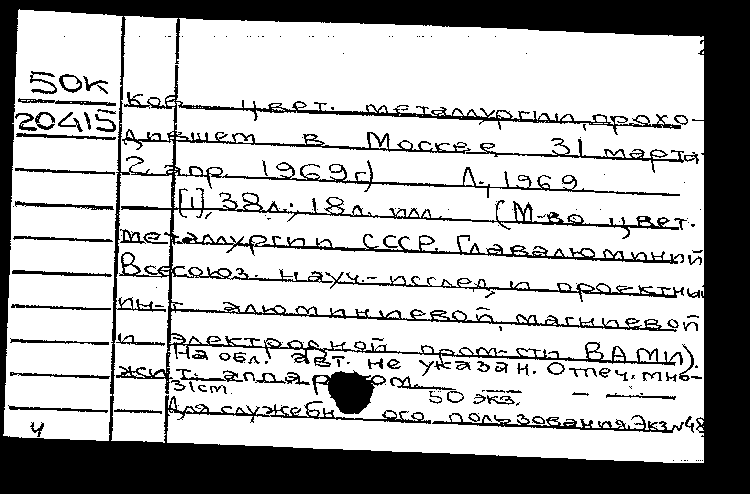 50К
20415
ков цвет. металлургии, прохо-
дившем в Москве 31 марта
2 апр. 1969г) Л., 1969
[1], 38л.; 18л. илл. (М-во цвет.
металлургии СССР. Главалюминий
Всесоюз. науч.-исслед. и проектный
ин-т алюминиевой, магниевой
и электродной пром-сти ВАМИ).
На обл. авт. не указан. Отпеч. мно-
жит. аппаратом.
31см. 50 экз.
Для служебного пользования. Экз. №48
4